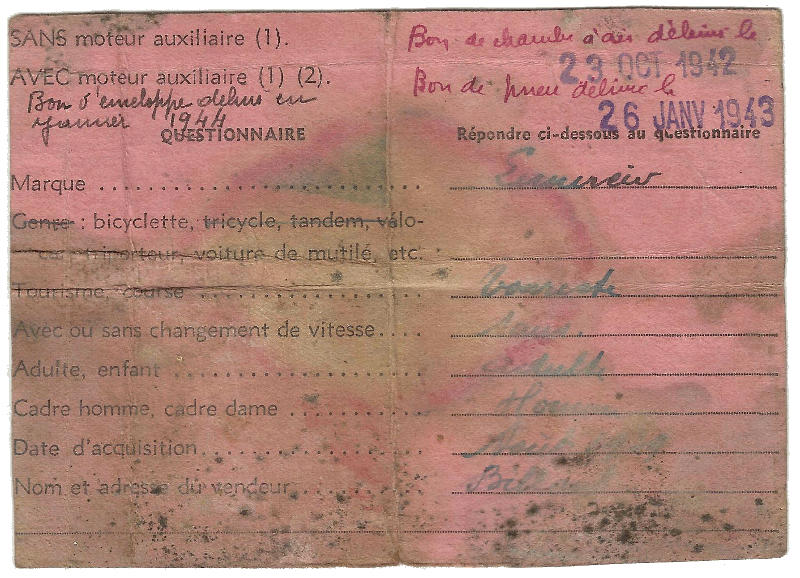 SANS moteur auxiliaire (1).
Bon de chambre à air délivré le
23 OCT 1942
AVEC moteur auxiliaire (1) (2).
Bon de pneu délivré le
26 JANV 1943
Bon d'enveloppe délivré en
janvier 1944
QUESTIONNAIRE
Répondre ci-dessous au questionnaire
Marque
Genre : bicyclette, tricycle, tandem, vélo-
triporteur, voiture de mutilé, etc.
Tourisme, course
Avec ou sans changement de vitesse
Sans
Adulte, enfant
Adulte
Cadre homme, cadre dame
Homme
Date d'acquisition
Nom et adresse du vendeur